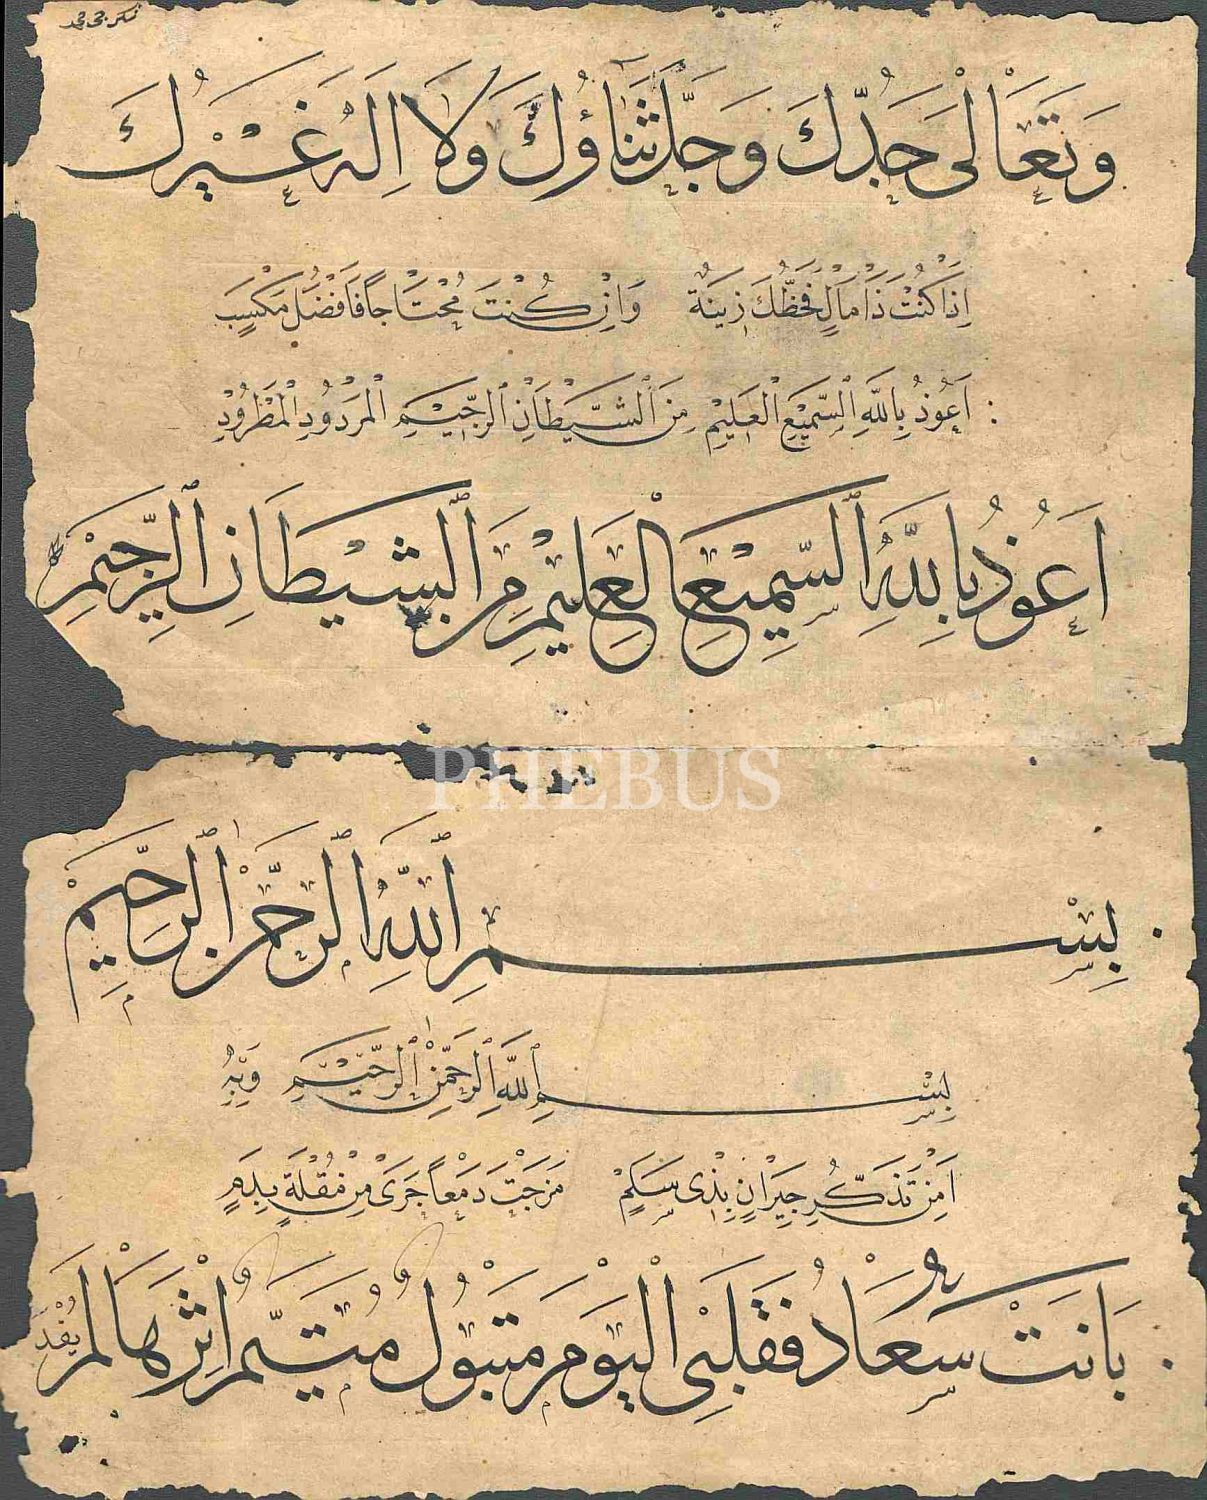 وَتَعَالٰى جَدُّكَ وَجَلَّ ثَنَاؤُكَ وَلَا اِلٰهَ غَيْرُكَ
اِذَا كُنْتَ ذَا مَالٍ فَحَظُّكَ زِينَةٌ وَاِنْ كُنْتَ مُحْتَاجًا فَاَفْضَلُ مَكْسَبِ
اَعُوذُ بِاللّٰهِ السَّمِيعِ الْعَلِيْمِ مِنَ الشَّيْطَانِ الرَّجِيْمِ الْمَرْدُودِ الْمَطْرُودِ
اَعُوذُ بِاللّٰهِ السَّمِيْعِ الْعَلِيْمِ مِنَ الشَّيْطَانِ الرَّجِيْمِ
PHEBUS
بِسْمِ اللّٰهِ الرَّحْمٰنِ الرَّحِيْمِ
بِسْمِ اللّٰهِ الرَّحْمٰنِ الرَّحِيْمِ وَبِهِ
اَمِنْ تَذَكُّرِ جِيْرَانٍ بِذِى سَلَمٍ مَزَجْتَ دَمْعًا جَرٰى مِنْ مُقْلَةٍ بِدَمٍ
بَانَتْ سُعَادُ فَقَلْبِى الْيَوْمَ مَتْبُولُ مُتَيَّمٌ اِثْرَهَا لَمْ يُفْدَ